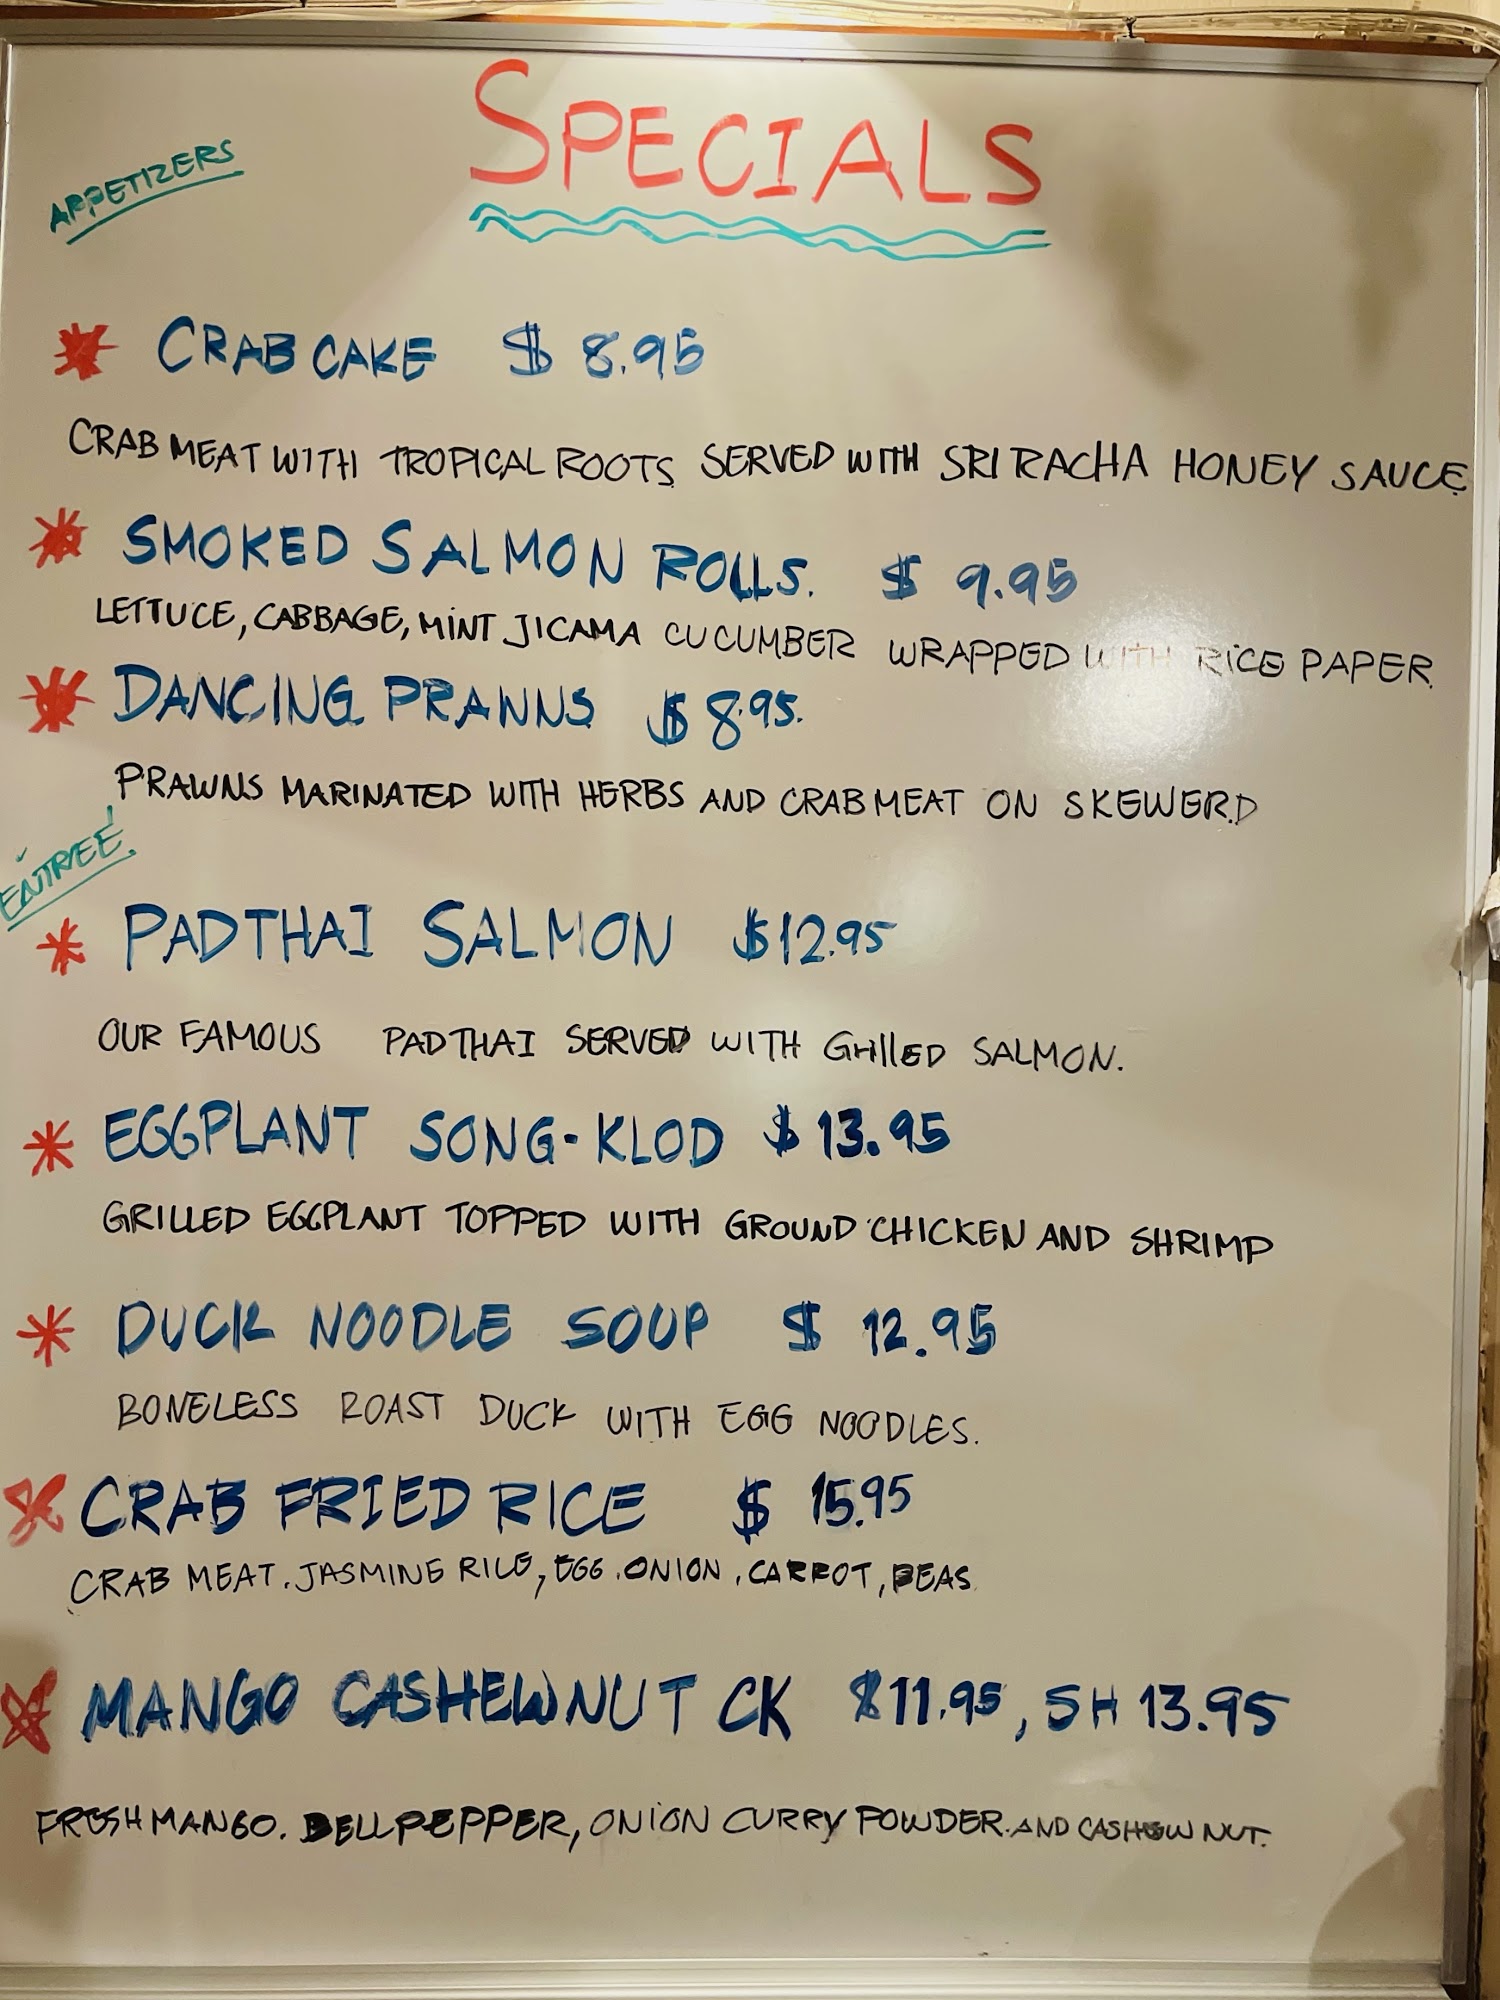 SPECIALS
APPETIZERS
CRAB CAKE $ 8.95
CRAB MEAT WITH TROPICAL ROOTS SERVED WITH SRIRACHA HONEY SAUCE
SMOKED SALMON ROLLS. $ 9.95
LETTUCE, CABBAGE, MINT JICAMA CUCUMBER WRAPPED WITH RICE PAPER
DANCING PRAWNS $ 8.95.
PRAWNS MARINATED WITH HERBS AND CRAB MEAT ON SKEWERD
ENTREE
PADTHAI SALMON $12.95
OUR FAMOUS PADTHAI SERVED WITH GRILLED SALMON.
EGGPLANT SONG-KLOD $13.95
GRILLED EGGPLANT TOPPED WITH GROUND CHICKEN AND SHRIMP
DUCK NOODLE SOUP $ 12.95
BONELESS ROAST DUCK WITH EGG NOODLES.
CRAB FRIED RICE $ 15.95
CRAB MEAT. JASMINE RICE, EGG. ONION, CARROT, PEAS
MANGO CASHEWNUT CK $11.95, SH 13.95
FRESH MANGO. BELLPEPPER, ONION CURRY POWDER. AND CASHEW NUT.